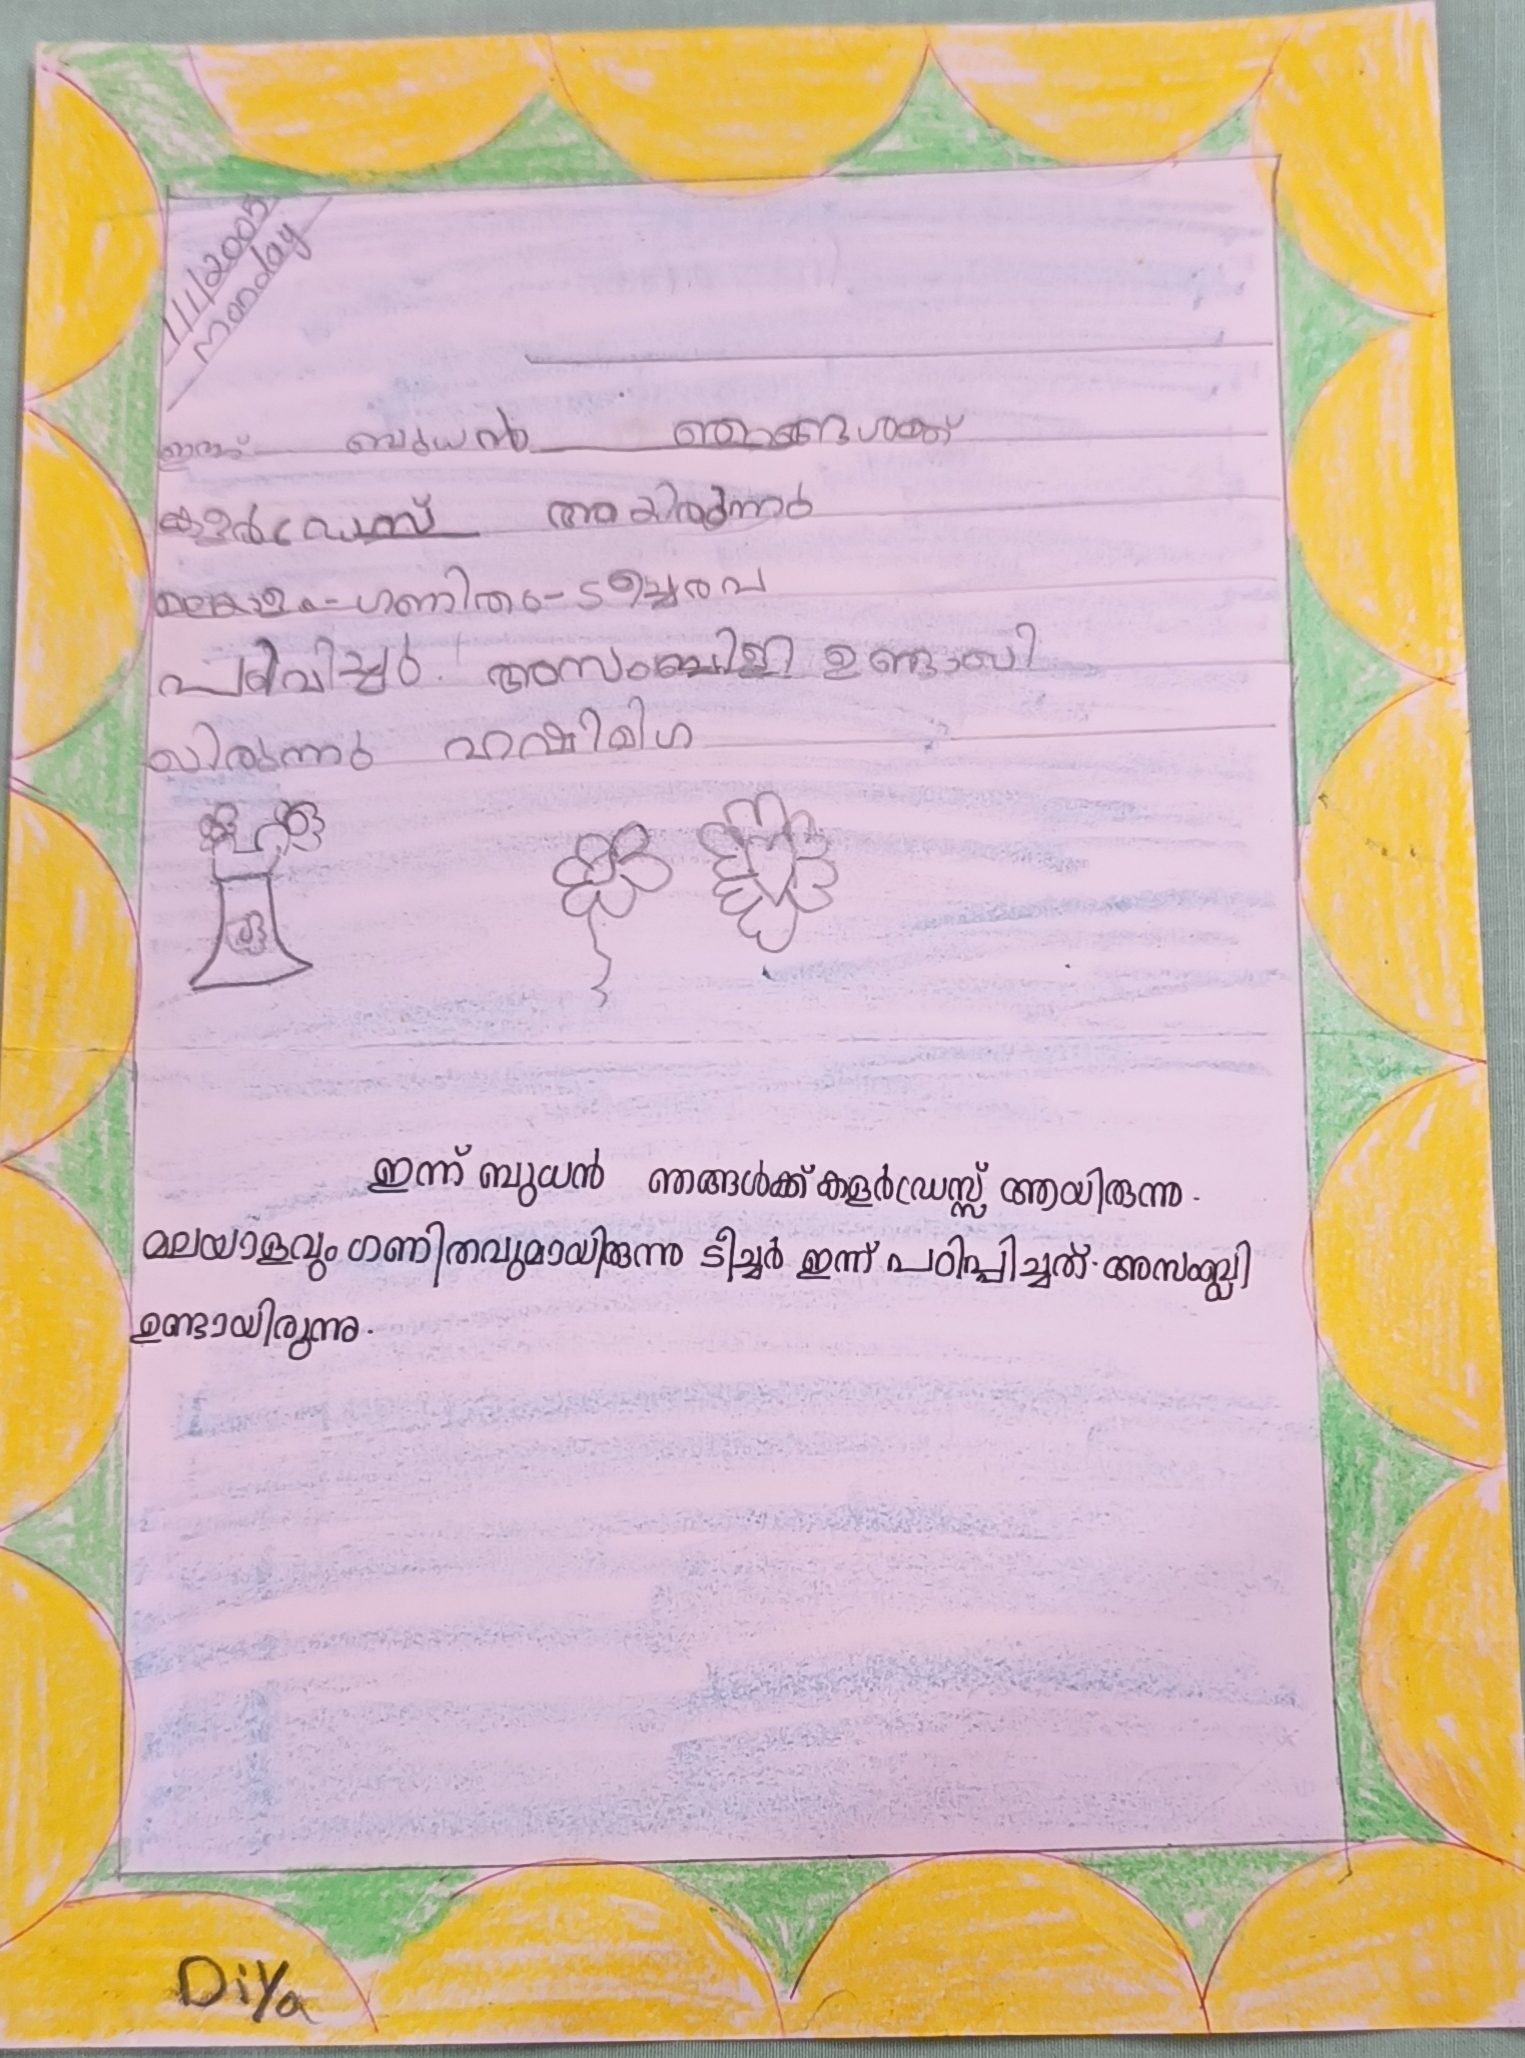 1/1/2005
Monday
ഇന്ന് ബുധൻ ഞങ്ങൾക്ക്
കളർഡ്രേസ് അയിരുന്നർ
ഗണിതം-ടീച്ചർ
അസംബ്ലി ഉണ്ടായി
യിരുന്നർ
ഇന്ന് ബുധൻ ഞങ്ങൾക്ക് കളർഡ്രേസ്സ് ആയിരുന്നു.
മലയാളവും ഗണിതവുമായിരുന്നു ടീച്ചർ ഇന്ന് പഠിപ്പിച്ചത്. അസംബ്ലി
ഉണ്ടായിരുന്നു.
Diya